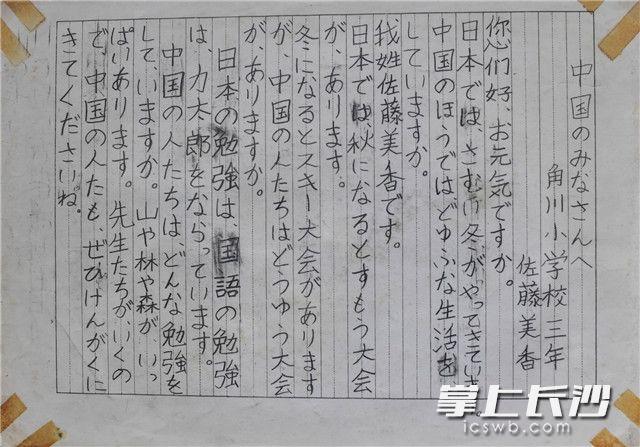 中国のみなさんへ
角川小学校三年
佐藤美香
您们好、お元気ですか。
日本では、さむい冬、がやってきています。
中国のほうではどゆふな生活を
していますか。
我姓佐藤美香です。
日本では、秋になるとすもう大会
が、あります。
冬になるとスキー大会があります
が、中国の人たちはどうゆう大会
が、ありますか。
日本の勉強は国語の勉強
は、力太郎をならっています。
中国の人たちは、どんな勉強を
して、いますか。山や林や森が、いっ
ぱいあります。先生たちが、いくの
で、中国の人たも、ぜひけんがくに
きてくださいね。
掌上长沙
icswb.com